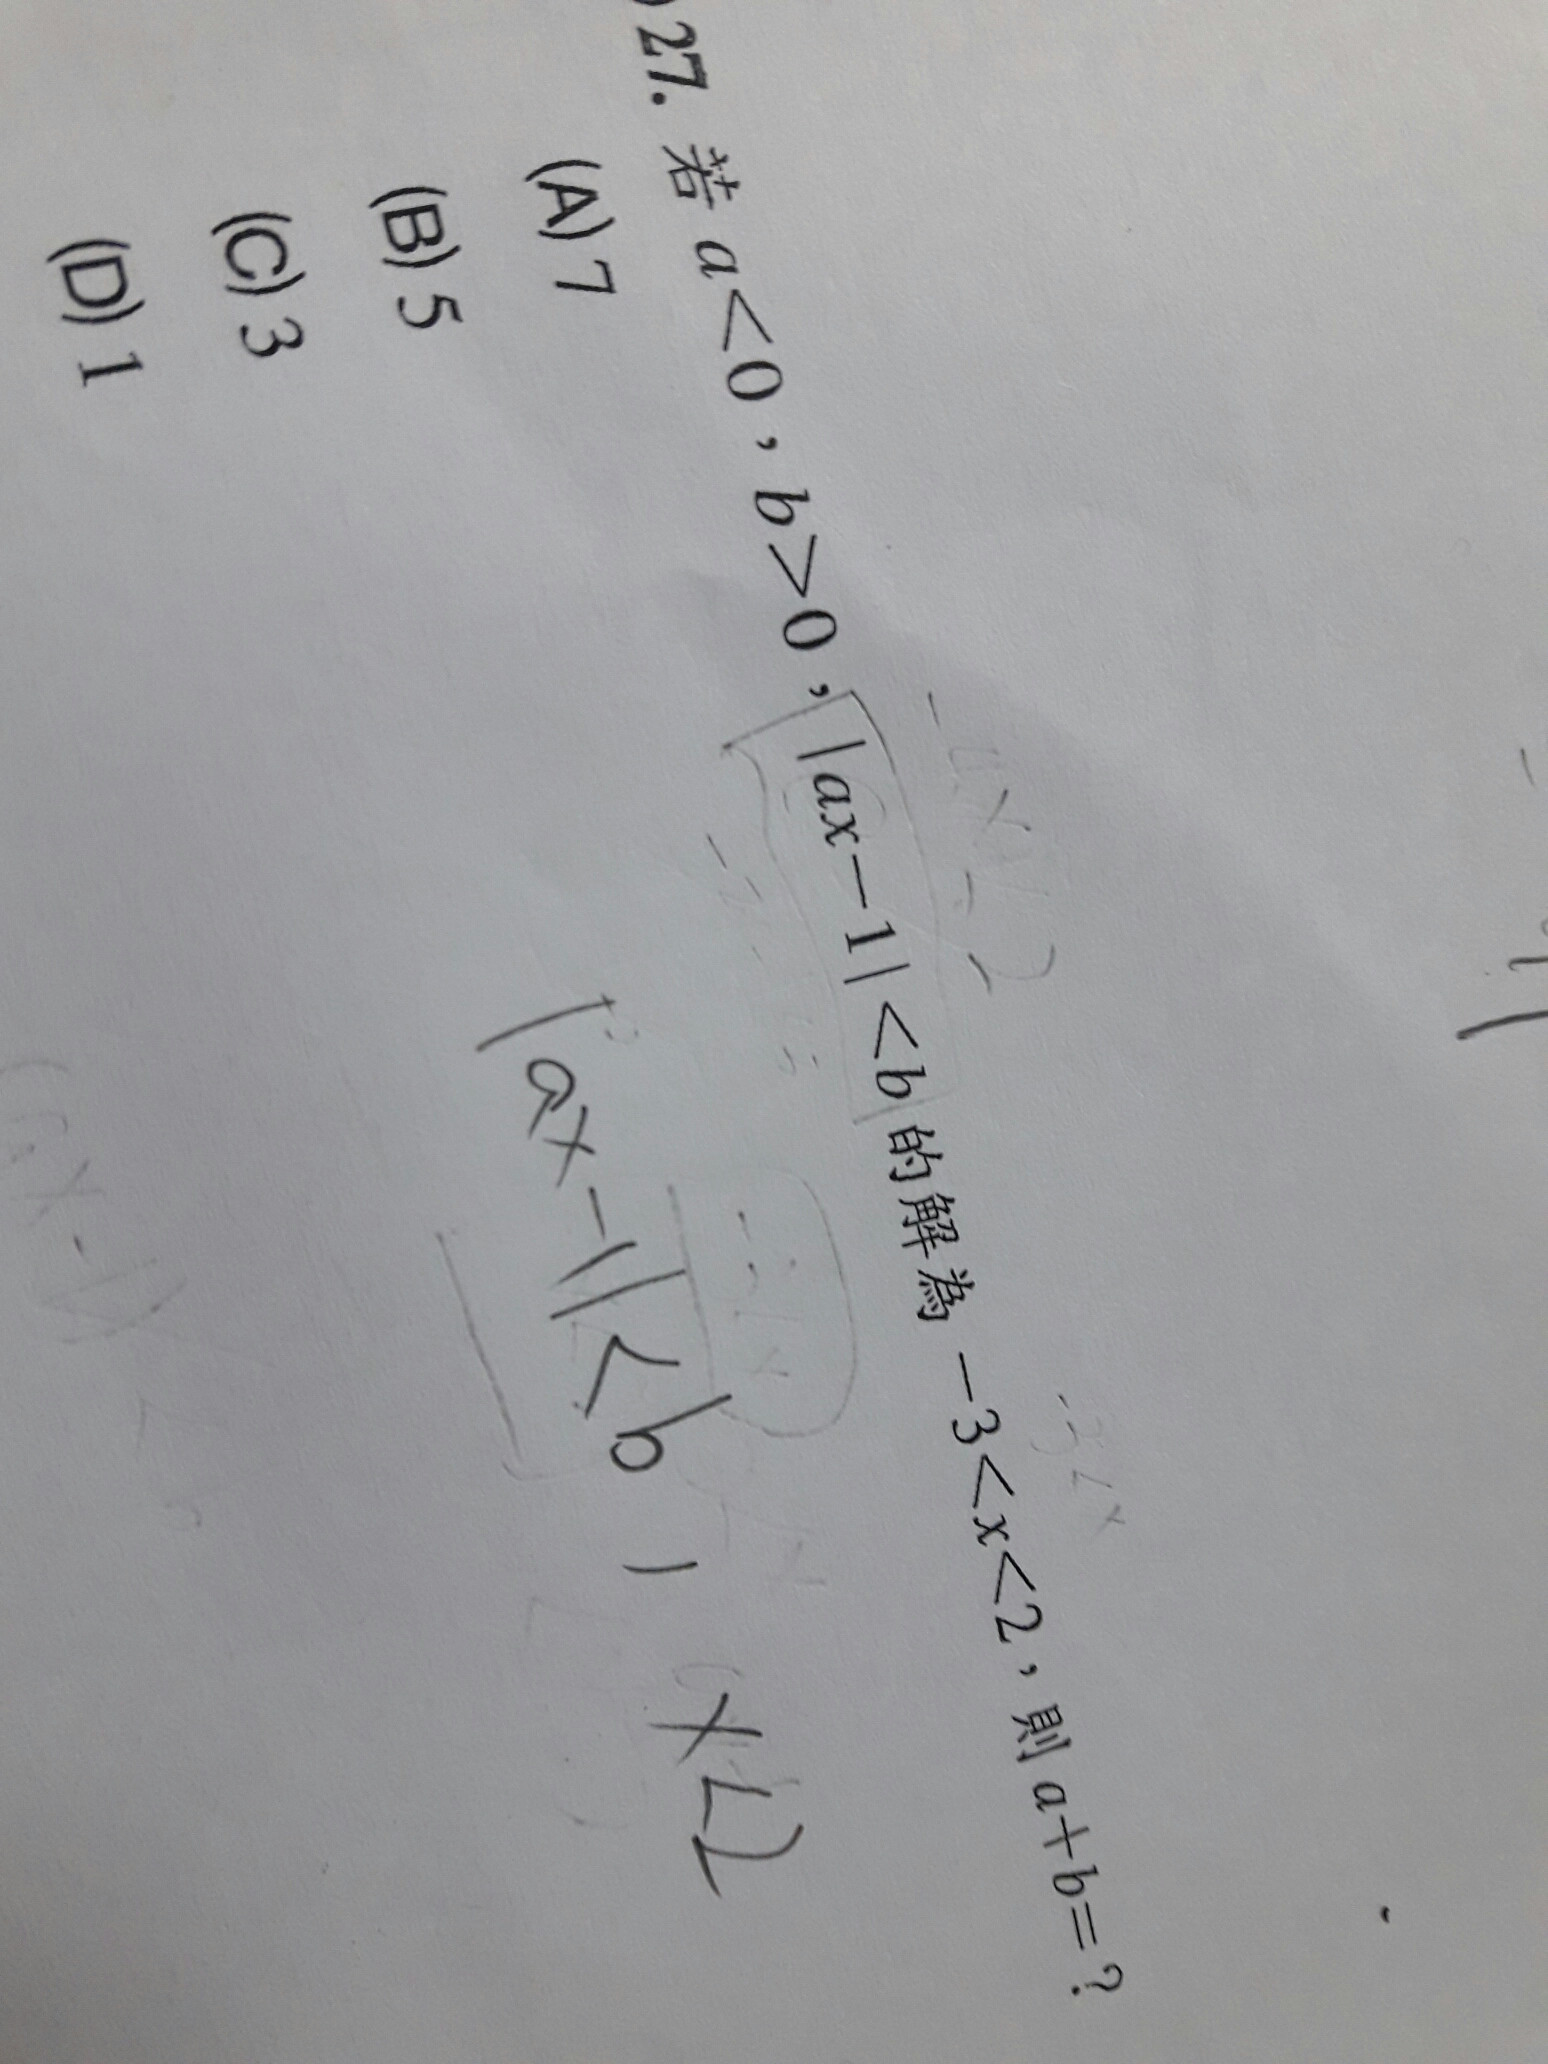 27. 若 a<0，b>0，|ax-1|<b 的解為 -3<x<2，則 a+b=?
(A) 7
(B) 5
(C) 3
(D) 1
-3<x
|ax-1|<b
x<2